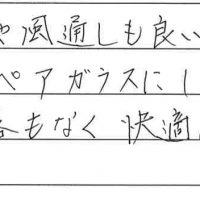 や風通しも良い
ペアガラスにし
もなく快適